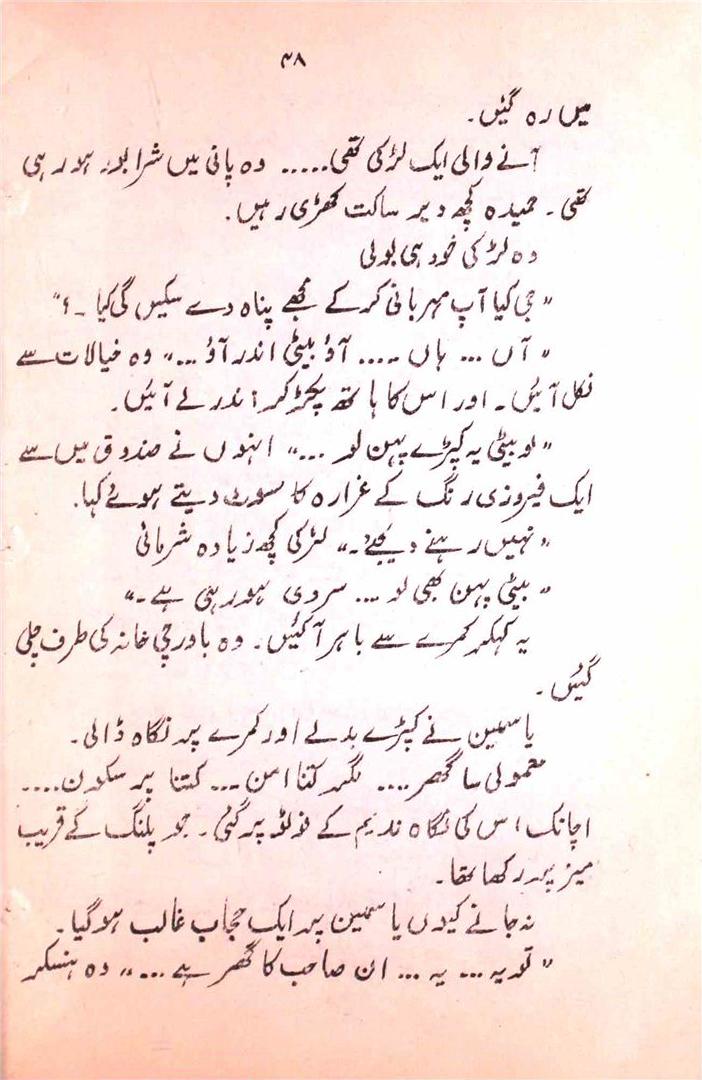 ۳۸
میں رہ گئیں۔
آنے والی ایک لڑکی تھی..... وہ پانی میں شرابور ہو رہی
تھی۔ حمیدہ کچھ دیر ساکت کھڑی رہیں۔
وہ لڑکی خود ہی بولی
"جی کیا آپ مہربانی کرکے مجھے پناہ دے سکیں گی کیا۔؟"
"آں ... ہاں .... آؤ بیٹی اندر آؤ ..." وہ خیالات سے
نکل آئیں۔ اور اس کا ہاتھ پکڑ کر اندر لے آئیں۔
"لو بیٹی یہ کپڑے پہن لو ..." انہوں نے صندوق میں سے
ایک فیروزی رنگ کے غرارہ کا سوٹ دیتے ہوئے کہا۔
"نہیں رہنے دیجئے۔" لڑکی کچھ زیادہ شرمائی
"بیٹی پہن بھی لو ... سردی ہو رہی ہے۔"
یہ کہکر کمرے سے باہر آ گئیں۔ وہ باورچی خانہ کی طرف چلی
گئیں۔
یاسمین نے کپڑے بدلے اور کمرے پر نگاہ ڈالی۔
معمولی سا گھر .... مگر کتنا امن ... کتنا پر سکون ....
اچانک اس کی نگاہ ندیم کے فوٹو پر گئی۔ جو پلنگ کے قریب
میز پر رکھا تھا۔
نہ جانے کیوں یاسمین پر ایک حجاب غالب ہو گیا۔
"تو یہ ... یہ ... ان صاحب کا گھر ہے ..." وہ ہنسکر